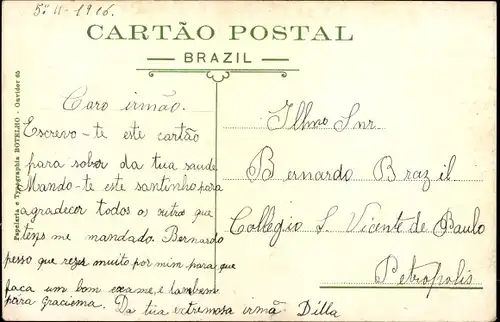 5-11-1916.
CARTÃO POSTAL
BRAZIL
Papelaria e Typographia BOTELHO - Ouvidor 65
Caro irmão.
Escrevo-te este cartão
para saber da tua saude
Mando-te este santinho para
agradecer todos os outro que
tens me mandado. Bernardo
pesso que rezes muito por mim para que
faca um bom exame, e tambem
para Gracisma. Da tua extremosa irmã Dilla
Illmo Snr.
Bernardo Brazil
Collegio S. Vicente de Paulo
Petropolis